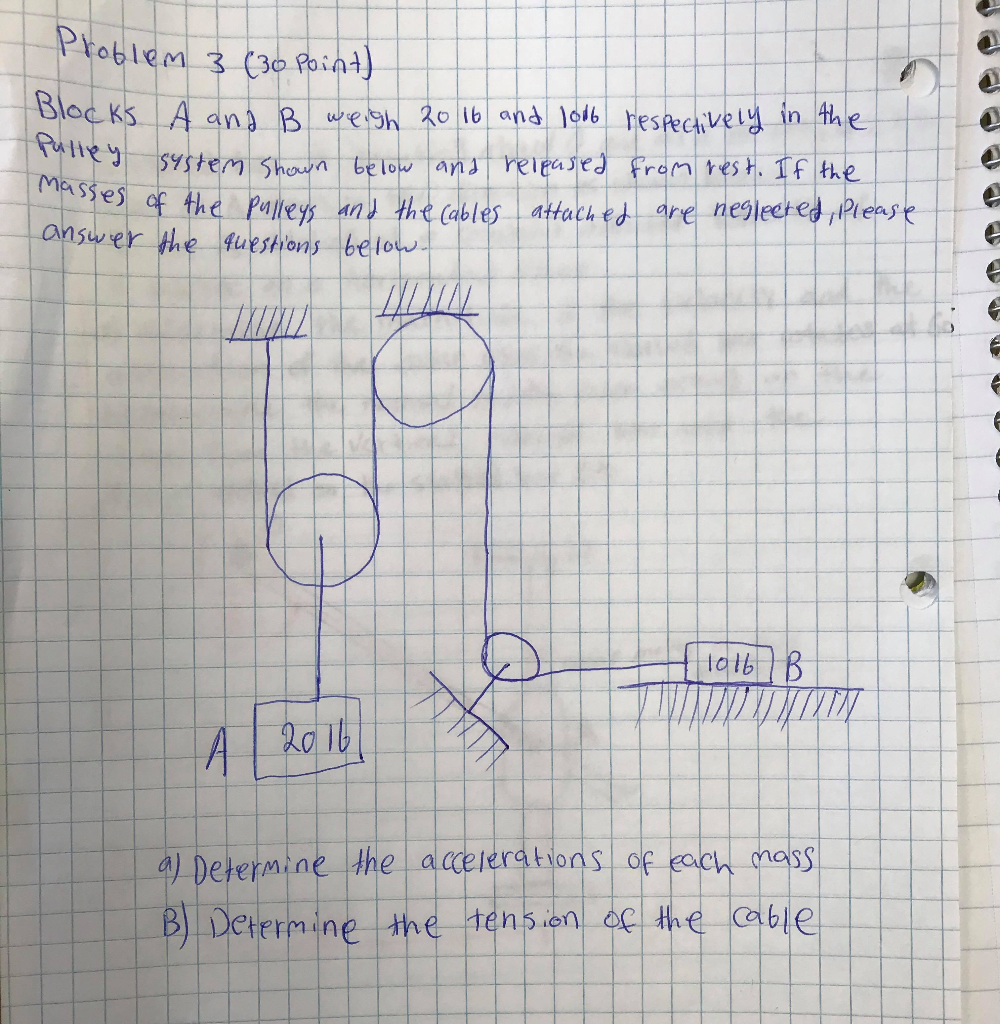 Problem 3 (30 Point)
Blocks A and B weigh 20 lb and 10lb respectively in the
Pulley system shown below and released from rest. If the
masses of the Pulleys and the cables attached are neglected, Please
answer the questions below.
20 lb
A
10 lb
B
a) Determine the accelerations of each mass
B) Determine the tension of the cable